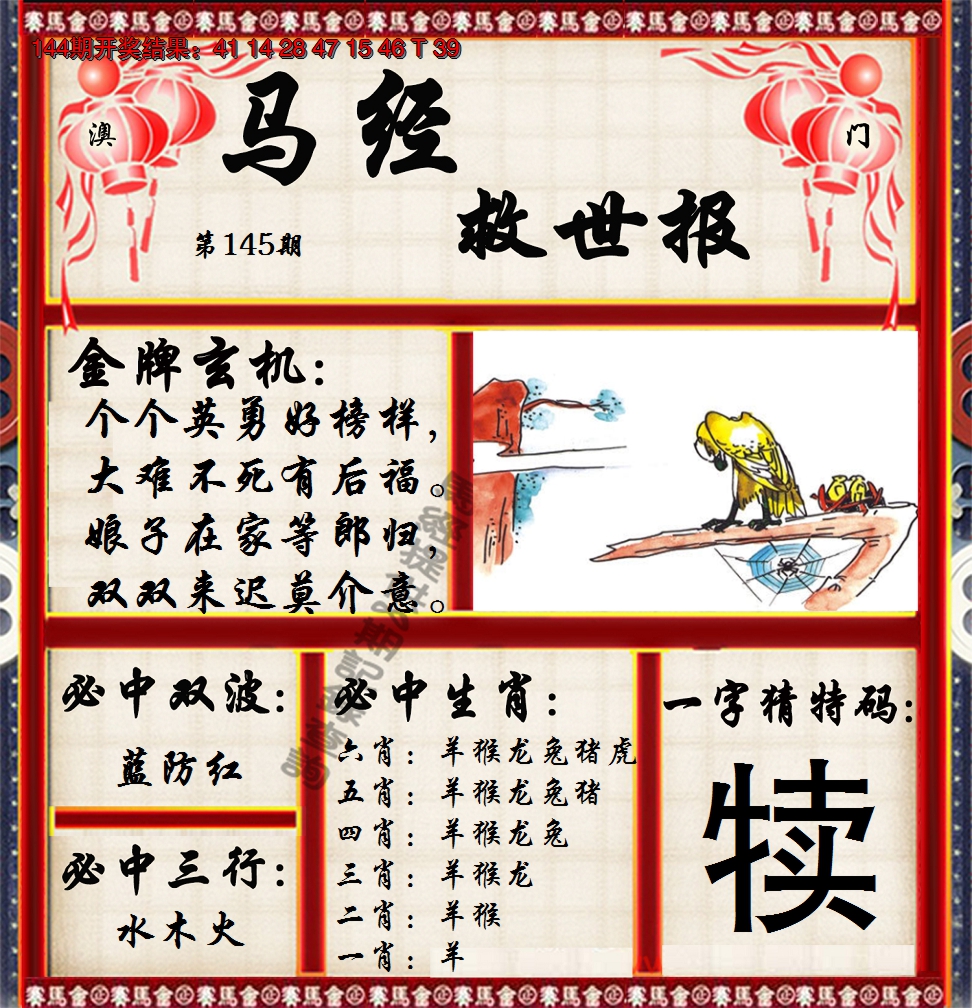 144期开奖结果：41 14 28 47 15 46 T 39
澳
门
马经
救世报
第145期
金牌玄机：
个个英勇好榜样，
大难不死有后福。
娘子在家等郎归，
双双来迟莫介意。
必中双波：
蓝防红
必中三行：
水木火
必中生肖：
六肖：羊猴龙兔猪虎
五肖：羊猴龙兔猪
四肖：羊猴龙兔
三肖：羊猴龙
二肖：羊猴
一肖：羊
一字猜特码：
犊